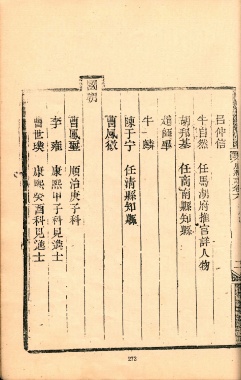 呂仲信
牛自然 任馬湖府推官詳人物
胡邦基 任商南縣知縣
趙師卑
牛麟
陳于宁 任清縣知縣
曹鳳徵
國朝
曹鳳翥 順治庚子科
李雍 康熙甲子科見進士
曹世璞 康熙癸酉科見進士
272